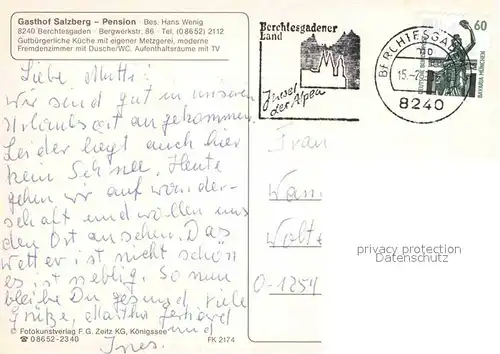 Gasthof Salzberg – Pension · Bes. Hans Wenig
8240 Berchtesgaden · Bergwerkstr. 86 · Tel. (0 86 52) 2112
Gutbürgerliche Küche mit eigener Metzgerei, moderne
Fremdenzimmer mit Dusche/WC. Aufenthaltsräume mit TV
Liebe Mutti!
Wir sind gut in unseren
Urlaubsort angekommen.
Leider liegt auch hier
kein Schnee. Heute
gehen wir auf wander-
schaft und wollen uns
den Ort ansehen. Das
Wetter ist nicht schön
es ist neblig. So nun
bleibe Du gesund, viele
Grüße, Martha Gerhard
und
Ines.
© Fotokunstverlag F. G. Zeitz KG, Königssee
☎ 08652-2340
FK 2174
Berchtesgadener
Land
Juwel
der Alpen
BERCHTESGA
15.-
8240
60
DEUTSCHE BUNDES
BAVARIA MÜNCHEN
Frau
Wolte
O-1254
privacy protection
Datenschutz